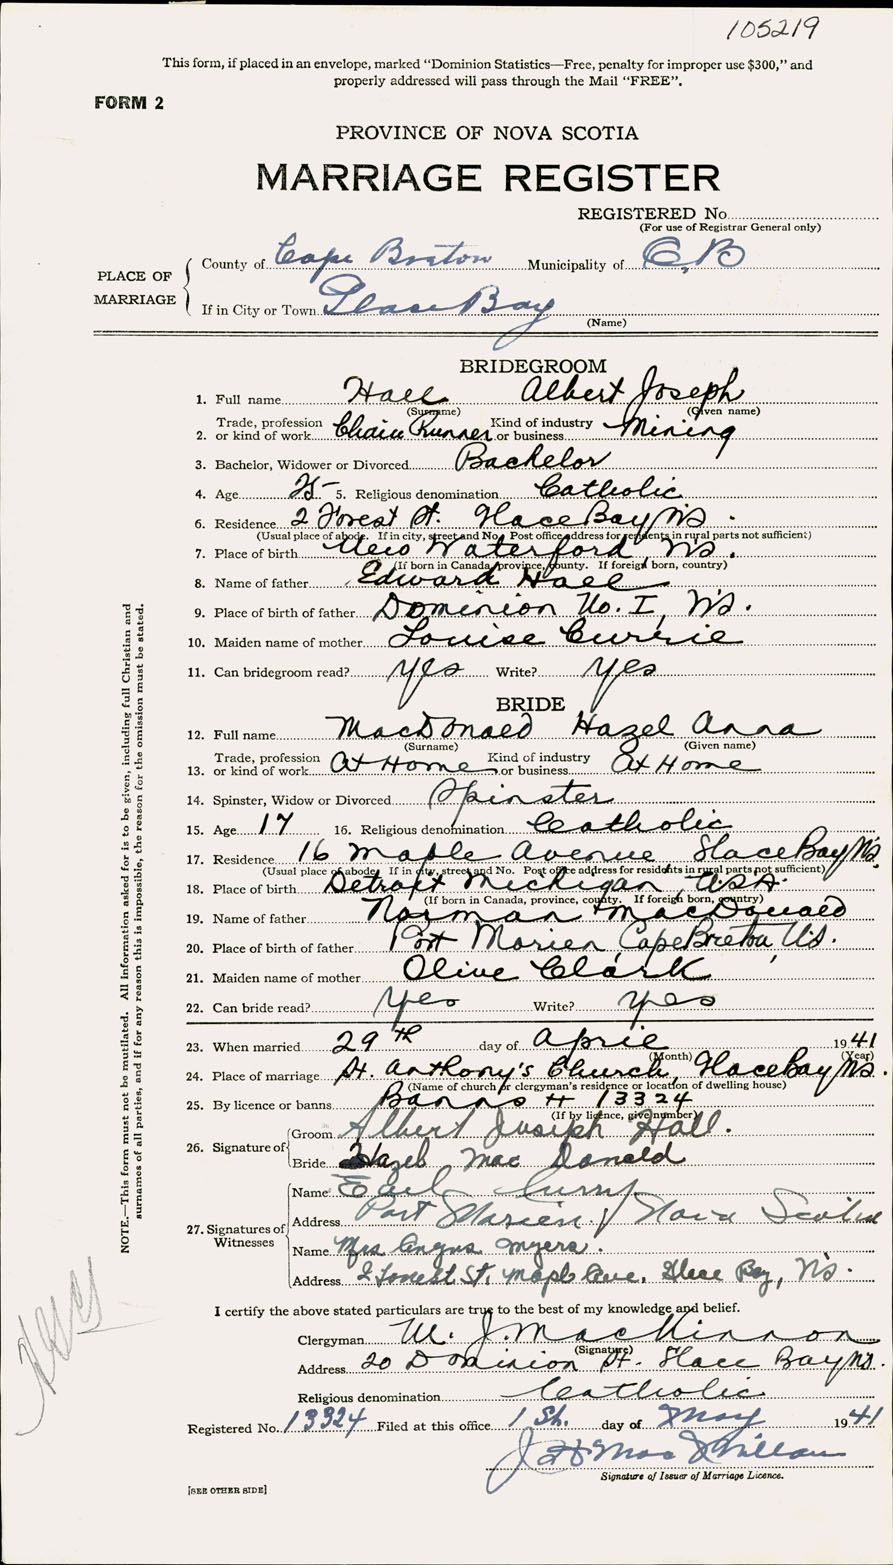 105219
This form, if placed in an envelope, marked "Dominion Statistics—Free, penalty for improper use $300," and
properly addressed will pass through the Mail "FREE".
FORM 2
PROVINCE OF NOVA SCOTIA
MARRIAGE REGISTER
REGISTERED No.
(For use of Registrar General only)
PLACE OF MARRIAGE
County of Cape Breton Municipality of C.B
If in City or Town Glace Bay
(Name)
BRIDEGROOM
1. Full name Hall Albert Joseph
(Surname) (Given name)
2. Trade, profession or kind of work Chain Runner Kind of industry or business Mining
3. Bachelor, Widower or Divorced Bachelor
4. Age 25 5. Religious denomination Catholic
6. Residence 2 Forest St. Glace Bay NS.
(Usual place of abode. If in city, street and No. Post office address for residents in rural parts not sufficient)
7. Place of birth New Waterford, NS.
(If born in Canada, province, county. If foreign born, country)
8. Name of father Edward Hall
9. Place of birth of father Dominion No. I, NS.
10. Maiden name of mother Louise Currie
11. Can bridegroom read? Yes Write? Yes
BRIDE
12. Full name MacDonald Hazel Anna
(Surname) (Given name)
13. Trade, profession or kind of work At Home Kind of industry or business At Home
14. Spinster, Widow or Divorced Spinster
15. Age 17 16. Religious denomination Catholic
17. Residence 16 Maple Avenue Glace Bay NS.
(Usual place of abode. If in city, street and No. Post office address for residents in rural parts not sufficient)
18. Place of birth Detroit Michigan, USA.
(If born in Canada, province, county. If foreign born, country)
19. Name of father Norman MacDonald
20. Place of birth of father Port Morien, Cape Breton, NS.
21. Maiden name of mother Olive Clark
22. Can bride read? Yes Write? Yes
23. When married 29th day of April 1941
(Month) (Year)
24. Place of marriage St. Anthony's Church, Glace Bay NS.
(Name of church or clergyman's residence or location of dwelling house)
25. By licence or banns Banns # 13324
(If by licence, give number)
26. Signature of
Groom Albert Joseph Hall.
Bride Hazel Mac Donald
27. Signatures of Witnesses
Name Earl Curry
Address Port Morien, Nova Scotia
Name Mrs Angus Myers.
Address 2 Forest St. Maple Ave. Glace Bay, NS.
I certify the above stated particulars are true to the best of my knowledge and belief.
Clergyman M. J. MacKinnon
(Signature)
Address 20 Dominion St. Glace Bay NS.
Religious denomination Catholic
Registered No. 13324 Filed at this office 1 St. day of May 1941
Signature of Issuer of Marriage Licence.
[SEE OTHER SIDE]
NOTE.—This form must not be mutilated. All information asked for is to be given, including full Christian and
surnames of all parties, and if for any reason this is impossible, the reason for the omission must be stated.